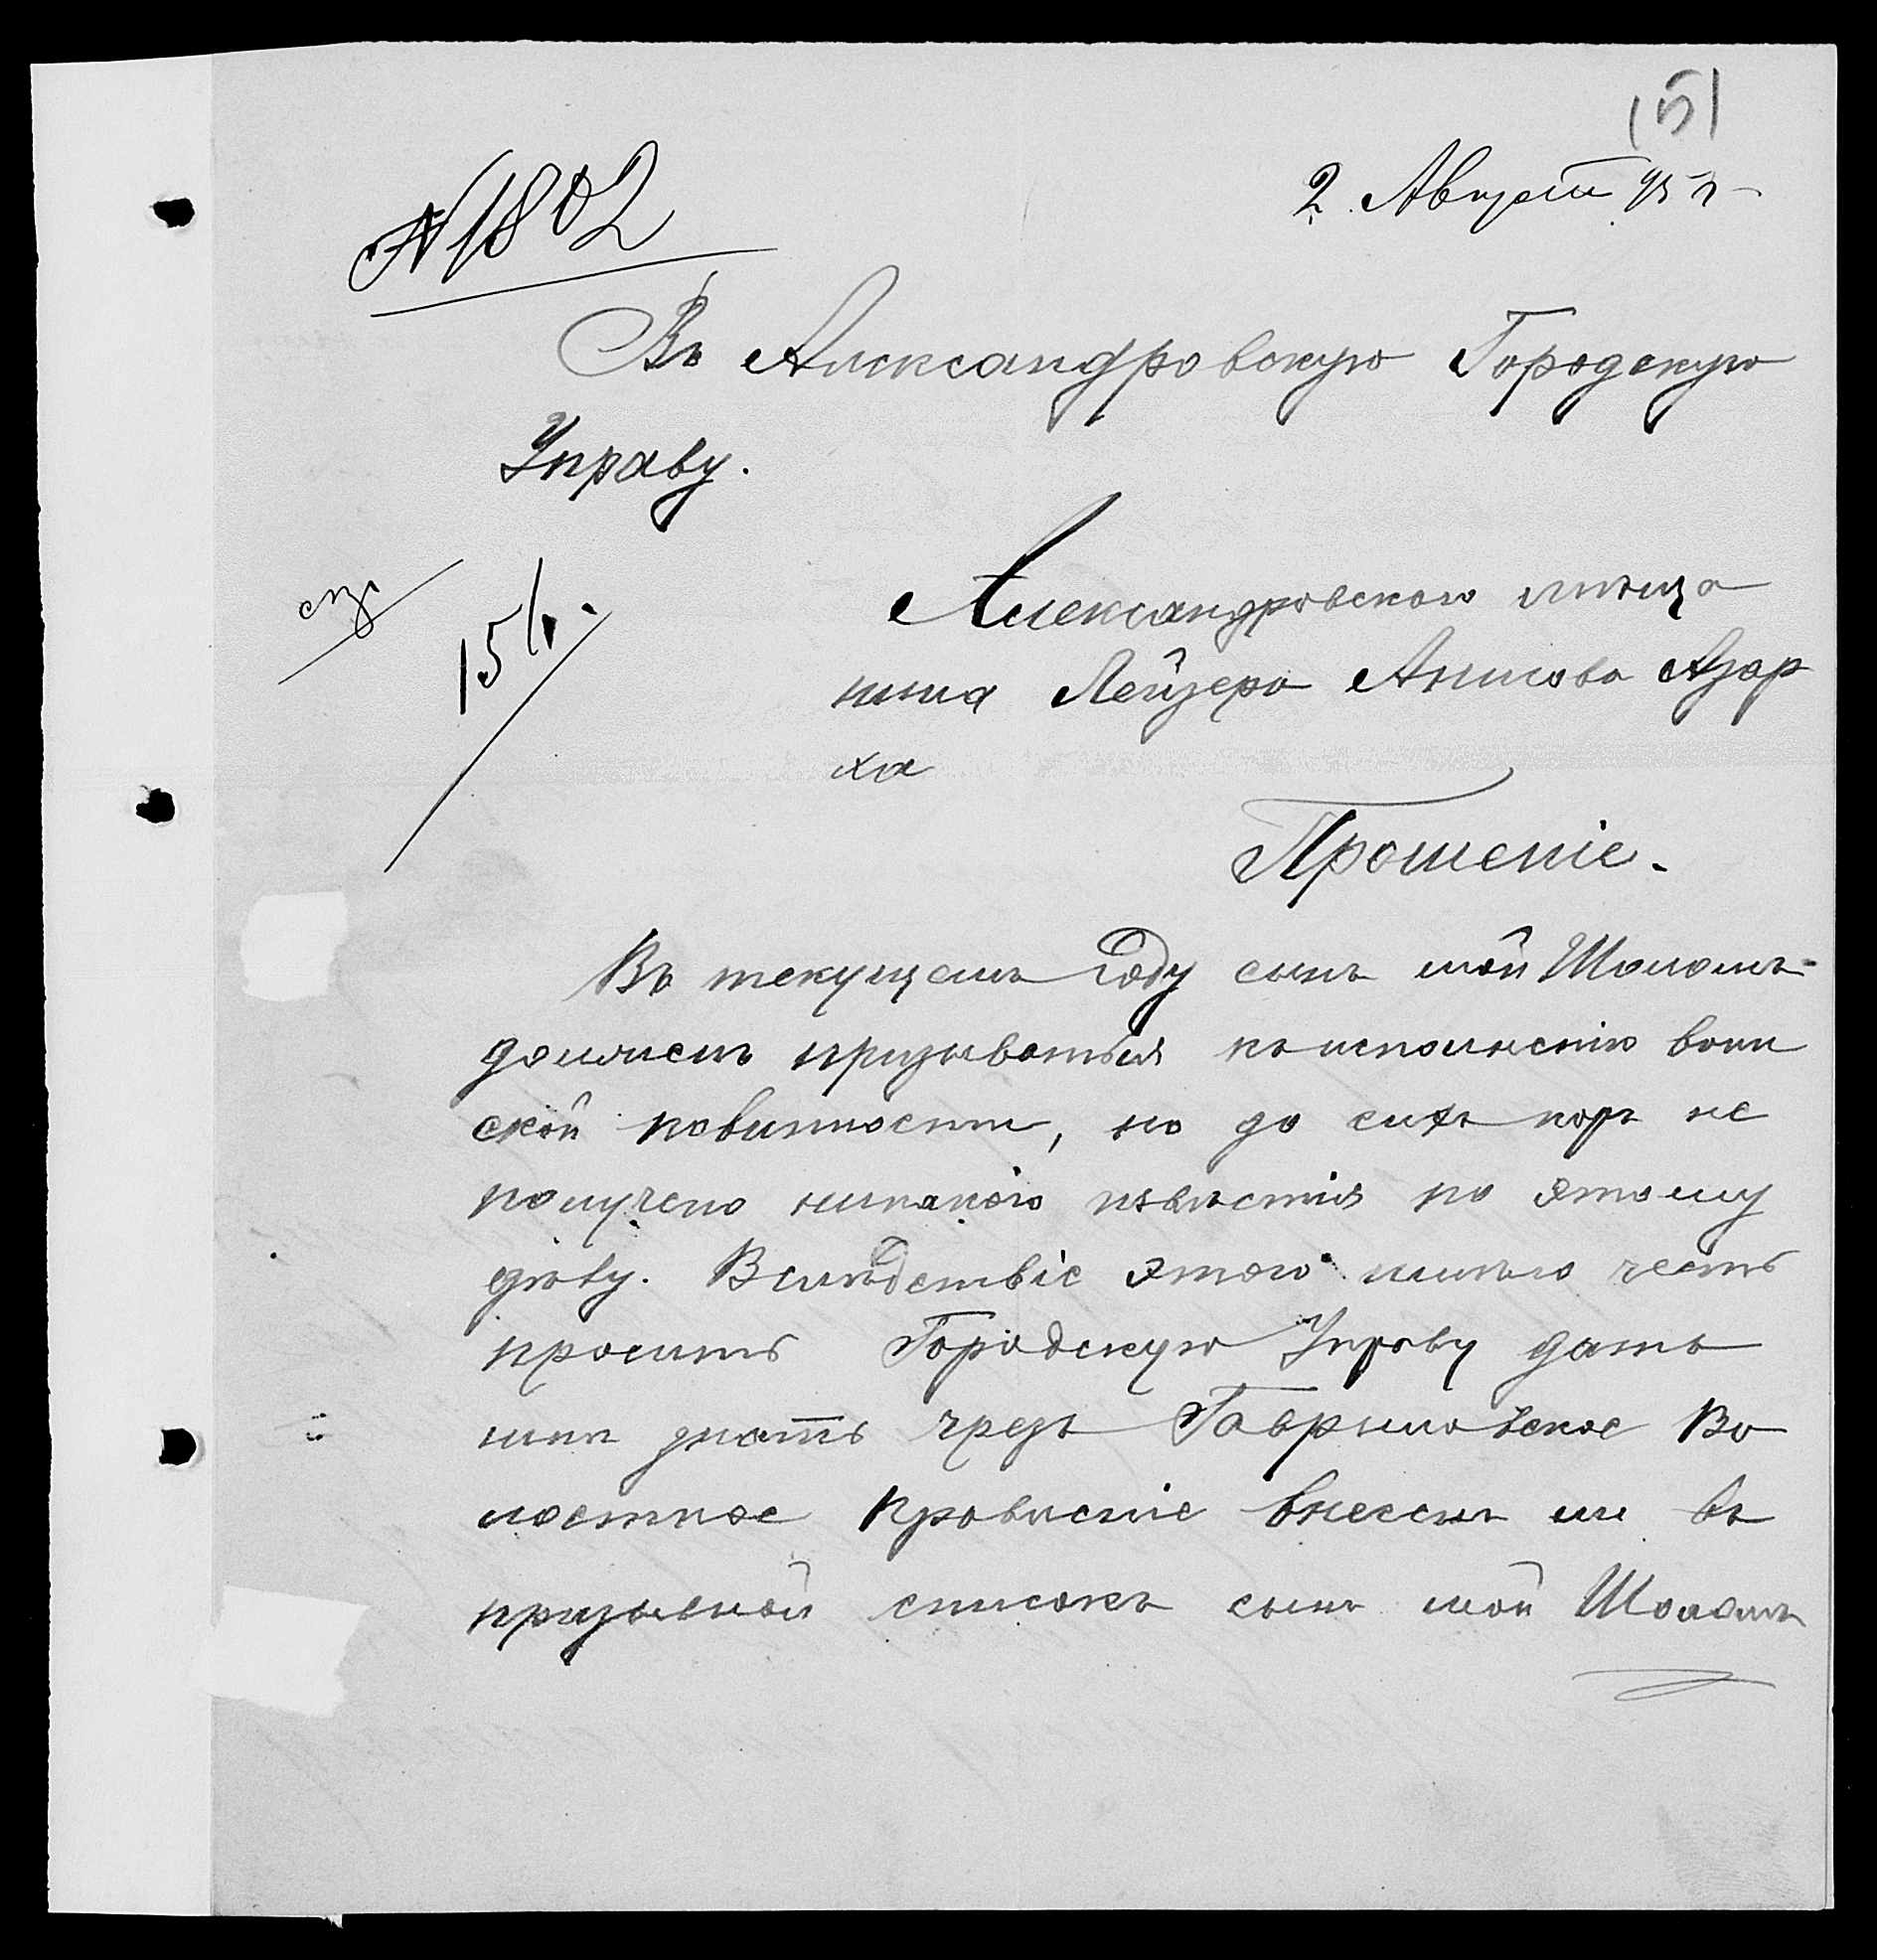 151
2 Август 95 г
№ 1802
Въ Александровскую Городскую
Управу.
Александровского мѣща
нина Лейзера Азар
ха
154.
Прошеніе.
Въ текущемъ году сынъ мой Шоломъ
долженъ призываться къ исполненію воин
ской повинности, но до сихъ поръ не
получено никакого извѣстія по этому
дѣлу. Вслѣдствіе этого имѣю честь
просить Городскую Управу дать
мнѣ знать чрезъ Гавриловское Во
лостное Правленіе внесенъ ли въ
призывной списокъ сынъ мой Шоломъ